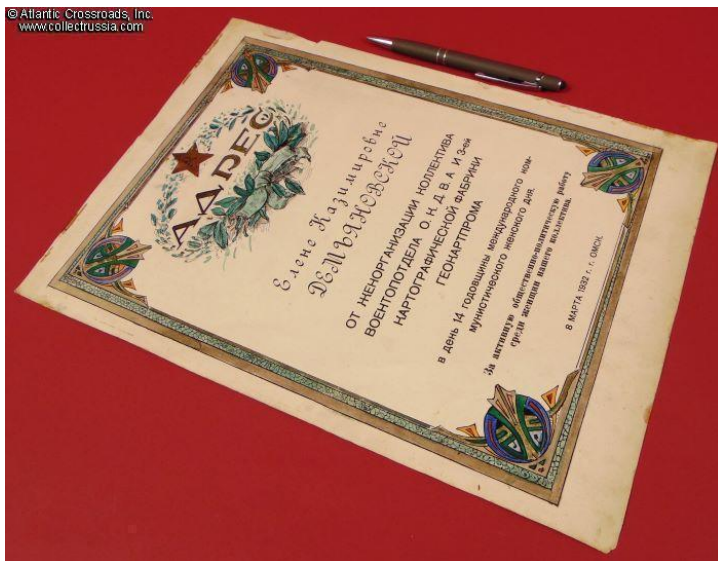 © Atlantic Crossroads, Inc.
www.collectrussia.com
АДРЕС
Елене Казимировне
ДЕМЬЯНОВСКОЙ
ОТ ЖЕНОРГАНИЗАЦИИ КОЛЛЕКТИВА
ВОЕНТОПОТДЕЛА О. К. Д. В. А. И 3-ей
КАРТОГРАФИЧЕСКОЙ ФАБРИКИ
ГЕОКАРТПРОМА
в день 14 годовщины международного ком-
мунистического женского дня.
За активную общественно-политическую работу
среди женщин нашего коллектива.
8 МАРТА 1932 г. г. ОМСК.